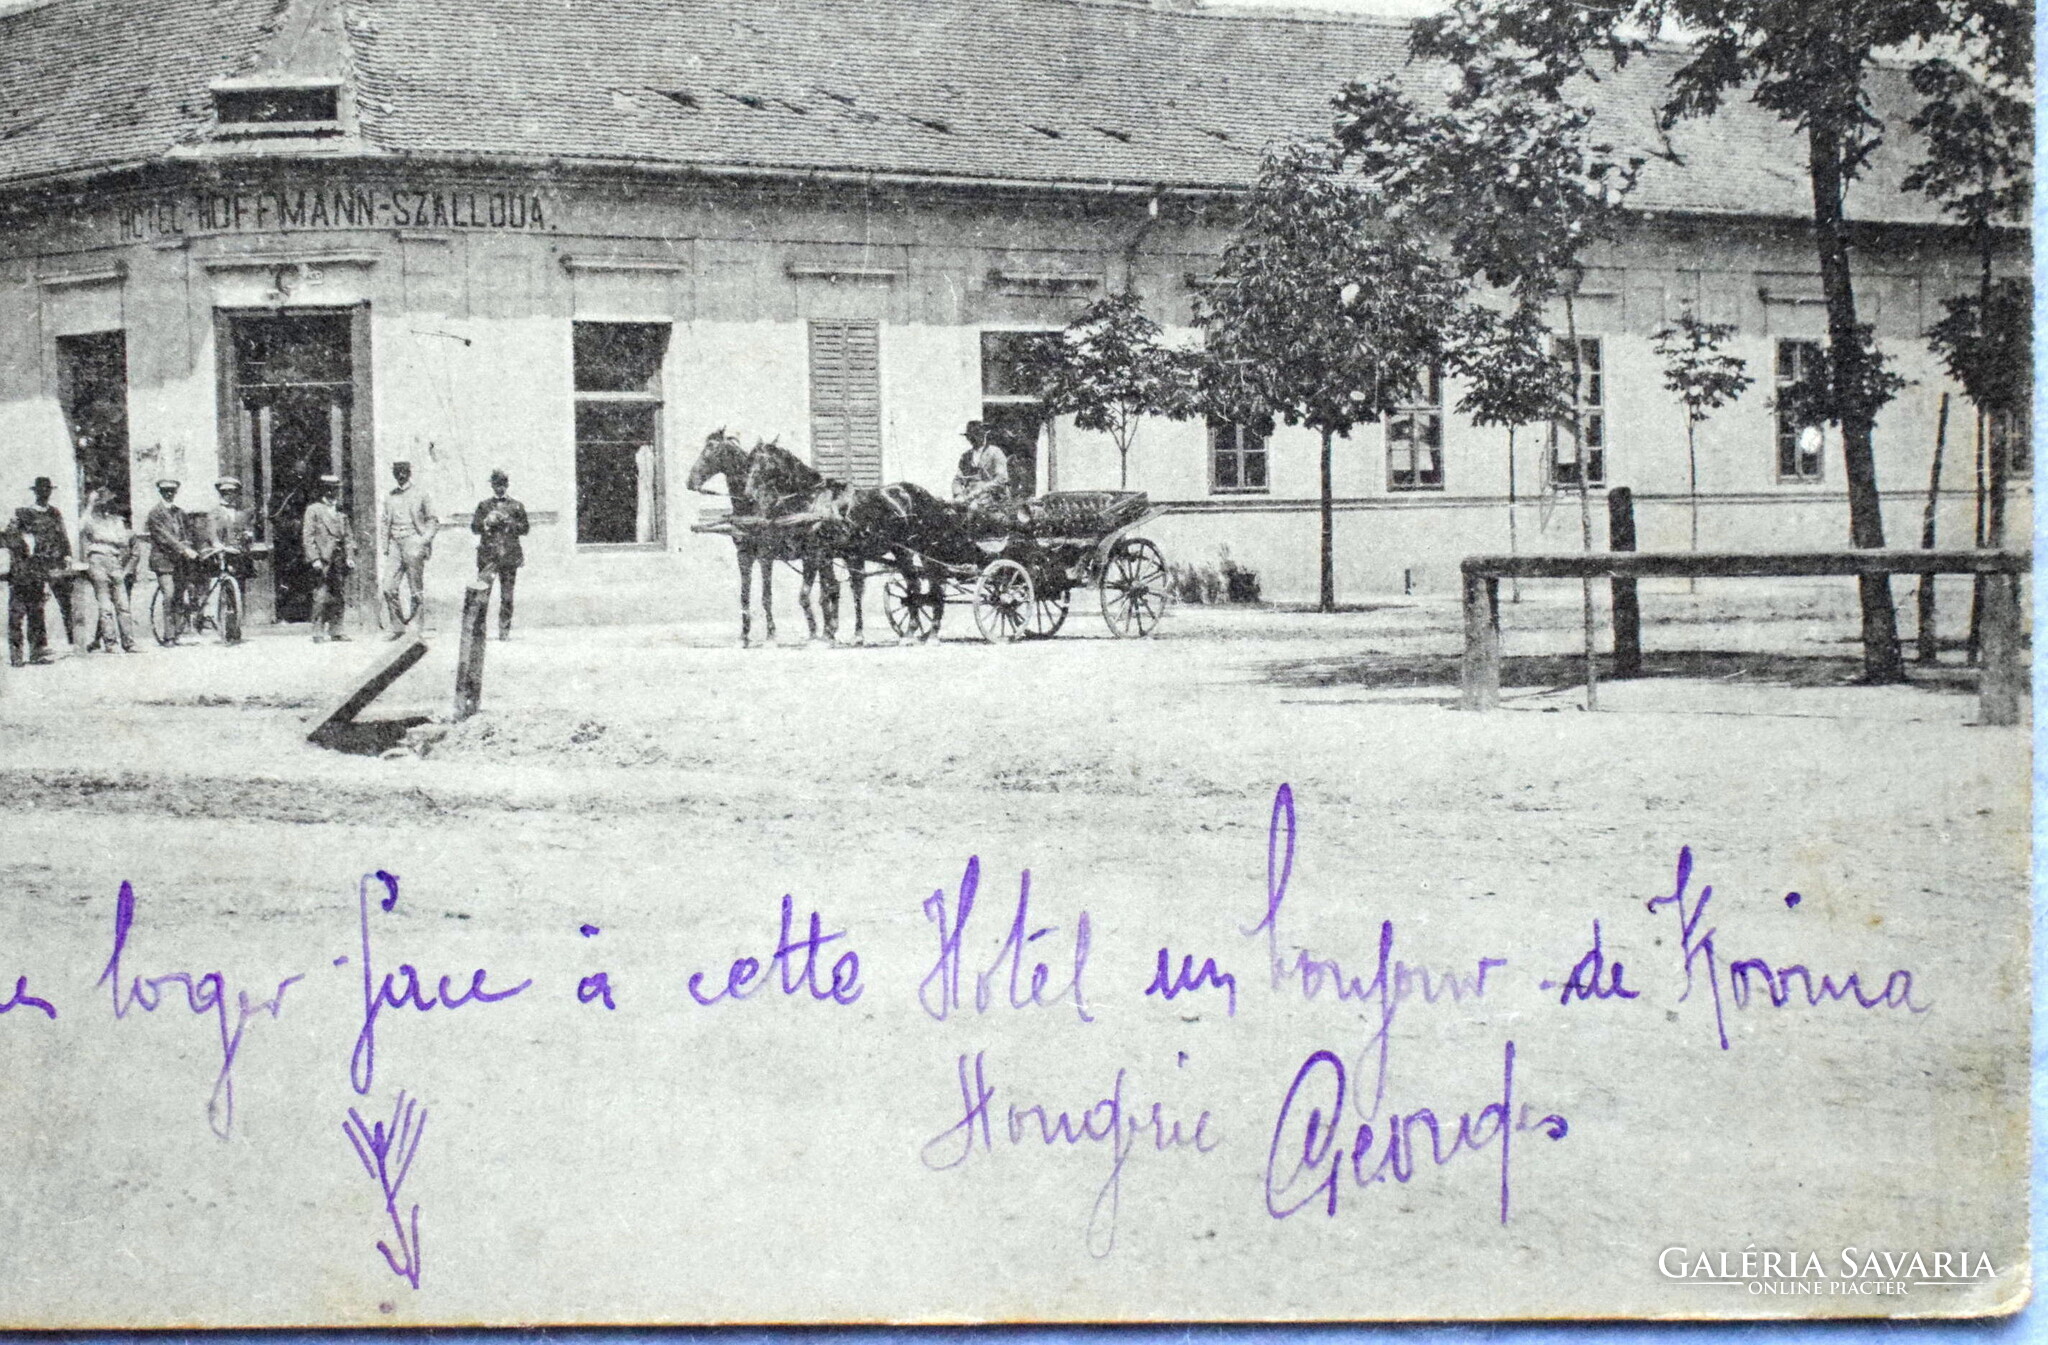 HOTEL-HOFFMANN-SZÁLLODA.
loger face à cette Hotel un bonjour de
Hongrie Georges
GALÉRIA SAVARIA
ONLINE PIACTÉR